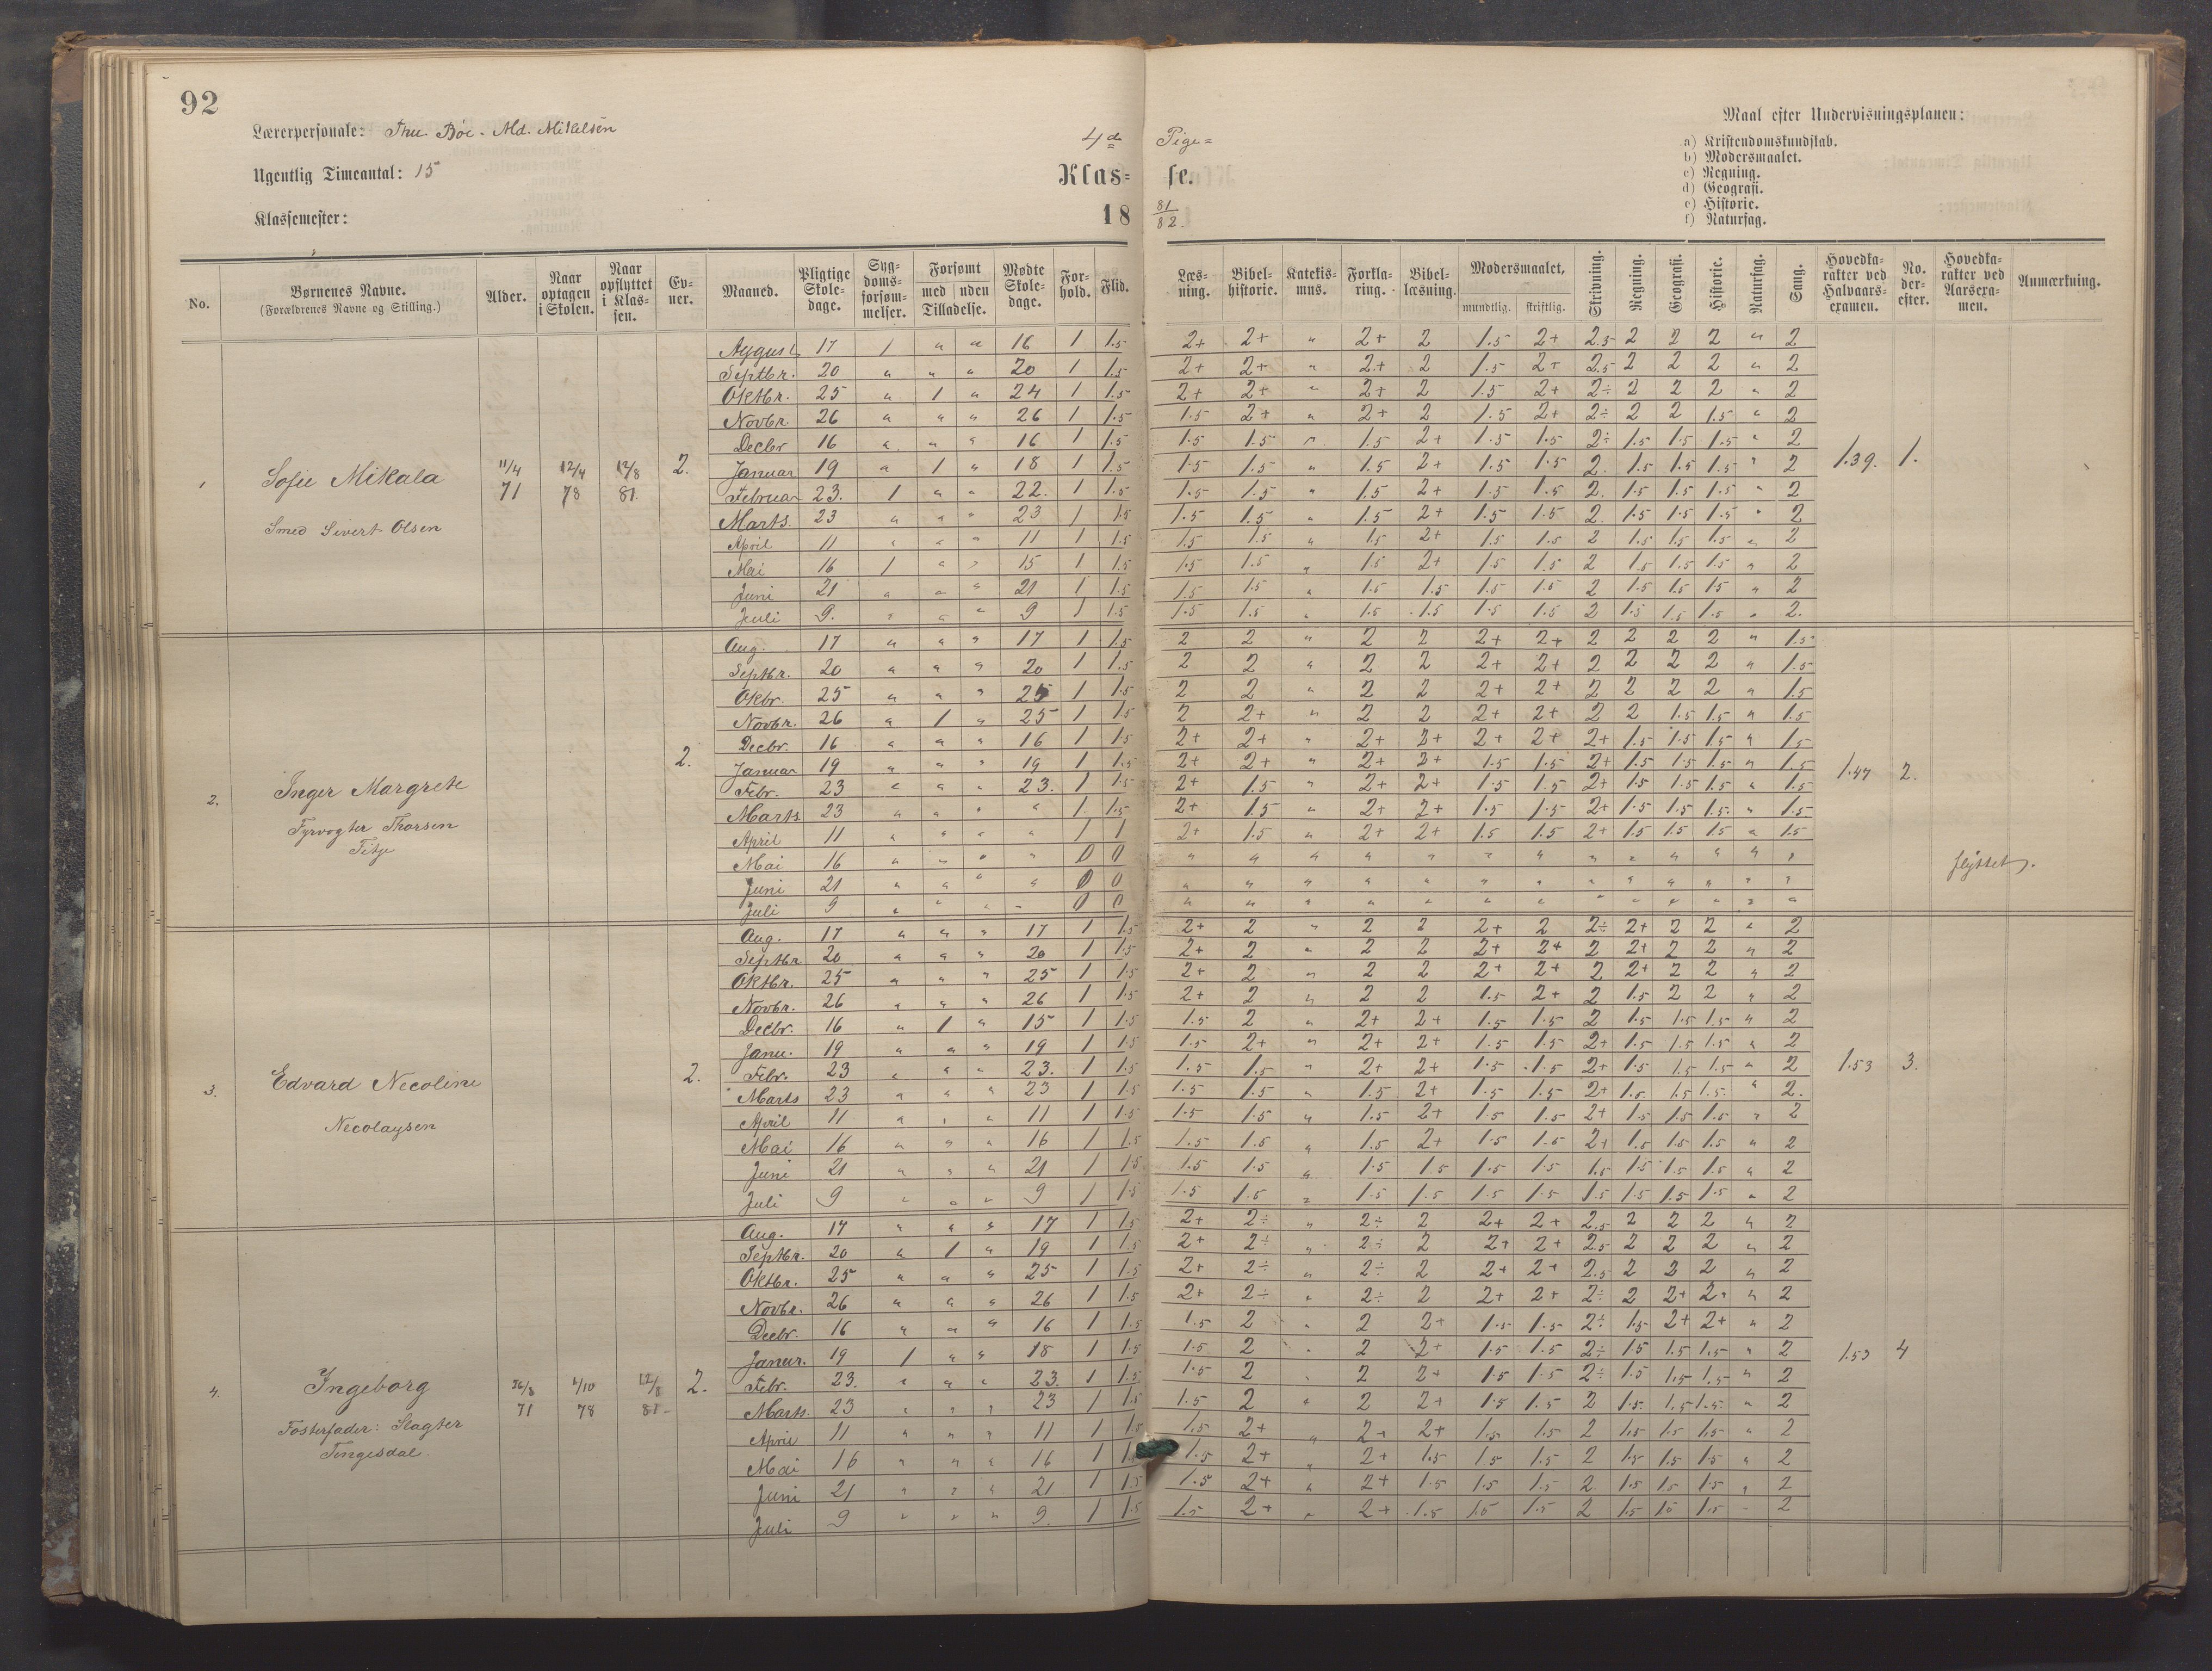 92
Lærerpersonale: Thu. Böe - Md. Mikelsen
4de Pige=
Maal efter Undervisningsplanen:
Ugentlig Timeantal: 15
Klas= se.
a) Kristendomskundskab.
b) Modersmaalet.
c) Regning.
d) Geografi.
e) Historie.
f) Naturfag.
Klassemester:
18 81/82.
No. | Børnenes Navne. (Forældrenes Navne og Stilling.) | Alder. | Naar optagen i Skolen. | Naar opflyttet i Klassen. | Evner. | Maaned. | Pligtige Skoledage. | Sygdomsforsømmelser. | Forsømt med uden Tilladelse. | Mødte Skoledage. | Forhold. | Flid. | Læsning. | Bibelhistorie. | Katekismus. | Forklaring. | Bibellæsning. | Modersmaalet, mundtlig. skriftlig. | Skrivning. | Regning. | Geografi. | Historie. | Naturfag. | Sang. | Hovedkarakter ved Halvaarsexamen. | No. derefter. | Hovedkarakter ved Aarsexamen. | Anmærkning.
1 Sofie Mikala
Smed Sivert Olsen
11/4 71 12/4 78 12/8 81. 2. 1.39. 1.
August 17 1 " " 16 1 1.5 2+ 2+ " 2+ 2 1.5 2+ 2.5 2 2 2 " 2
Septbr. 20 " " " 20 1 1.5 2+ 2+ " 2+ 2 1.5 2+ 2.5 2 2 2 " 2
Oktbr. 25 " 1 " 24 1 1.5 2+ 2+ " 2+ 2 1.5 2+ 2÷ 2 2 2 " 2
Novbr. 26 " " " 26 1 1.5 1.5 2+ " 2+ 2 1.5 2+ 2÷ 2 2 1.5 " 2
Decbr 16 " " " 16 1 1.5 1.5 1.5 " 1.5 2+ 1.5 1.5 2÷ 1.5 1.5 1.5 " 2
Januar 19 " 1 " 18 1 1.5 1.5 1.5 " 1.5 2+ 1.5 1.5 2. 1.5 1.5 1.5 " 2
Februar 23. 1 " " 22. 1 1.5 1.5 1.5 " 1.5 2+ 1.5 1.5 2. 1.5 1.5 1.5 " 2
Marts. 23 " " " 23 1 1.5 1.5 1.5 " 1.5 2+ 1.5 1.5 2. 1.5 1.5 1.5 " 2
April 11 " " " 11 1 1.5 1.5 1.5 " 1.5 2+ 1.5 1.5 2 1.5 1.5 1.5 " 2
Mai 16 1 " " 15 1 1.5 1.5 1.5 " 1.5 2+ 1.5 1.5 2 1.5 1.5 1.5 " 2
Juni 21 " " " 21 1 1.5 1.5 1.5 " 1.5 1.5 1.5 1.5 2 1.5 1.5 15 " 2
Juli 9. " " " 9 1 1.5 1.5 1.5 " 1.5 1.5 1.5 1.5 2 1.5 1.5 1.5 " 2.
2. Inger Margrete
Fyrvogter Thorsen
2. 1.47 2. flyttet.
Aug. 17 " " " 17 1 1.5 2 2 " 2 2 2+ 2+ 2 2 2 2 " 1.5
Septbr. 20 " " " 20 1 1.5 2 2 " 2 2 2+ 2+ 2 2 2 2 " 1.5
Okbr. 25 " " " 25 1 1.5 2 2 " 2 2 2+ 2+ 2 2 2 2 " 1.5
Novbr. 26 " 1 " 25 1 1.5 2 2+ " 2 2 2+ 2+ 2 2 1.5 1.5 " 1.5
Decbr. 16 " " " 16 1 1.5 2+ 2+ " 2+ 2+ 2+ 2+ 2+ 1.5 1.5 1.5 " 1.5
Januar 19 " " " 19 1 1.5 2+ 2+ " 2+ 2+ 1.5 1.5 2+ 1.5 1.5 1.5 " 1.5
Febr. 23 " " " 23. 1 1.5 2+ 1.5 " 2+ 2+ 1.5 1.5 2+ 1.5 1.5 1.5 " 1.5
Marts 23 " " " " 1. 1.5 2+ 1.5 " 2+ 2+ 1.5 1.5 2+ 1.5 1.5 1.5. " 1.5
April 11 " " " " 1 1 2+ 1.5 " 2+ 2+ 1.5 1.5 2+ 1.5 1.5 1.5 " 1.5
Mai 16 " " " " 0 0 " " " " " " " " " " " " "
Juni 21 " " " " 0 0 " " " " " " " " " " " " "
Juli 9 " " " " 0 0 " " " " " " " " " " " " "
3. Edvard Necoline
Necolaysen
2. 1.53 3.
Aug. 17 " " " 17 1 1.5 2+ 2 " 2 2 2+ 2 2÷ 2+ 2 2 " 2
Septbr 20 " " " 20 1 1.5 2+ 2 " 2 2 2+ 2+ 2 2+ 2 2 " 2
Oktbr. 25 " " " 25 1 1.5 2+ 2 " 2 2 2+ 2+ 2 2+ 2 2 " 2
Novbr. 26 " " " 26 1 1.5 2+ 2 " 2 2 1.5 2+ 2 1.5 2 2 " 2
Decbr. 16 " 1 " 15 1 1.5 1.5 2 " 2+ 2+ 1.5 1.5 2 1.5 1.5 1.5 " 2
Janu. 19 " " " 19 1 1.5 1.5 2+ " 2+ 2+ 1.5 1.5 2+ 1.5 1.5 1.5 " 2
Febr. 23 " " " 23. 1 1.5 1.5 1.5 " 2+ 2+ 1.5 1.5 2+ 1.5 1.5 1.5 " 2
Marts 23 " " " 23 1 1.5 1.5 1.5 " 1.5 2+ 1.5 1.5 2+ 1.5 1.5 1.5. " 2.
April 11 " " " 11 1 1.5 1.5 1.5 " 1.5 2+ 1.5 1.5 2+ 1.5 1.5 1.5 " 2
Mai 16 " " " 16 1 1.5 1.5 1.5 " 1.5 2+ 1.5 1.5 2+ 1.5 1.5 1.5 " 2
Juni 21 " " " 21 1 1.5 1.5 1.5 " 1.5 1.5 1.5 1.5 1.5 1.5 1.5 1.5 " 2
Juli 9 " " " 9 1 1.5 1.5 1.5 " 1.5 1.5 1.5 1.5 1.5 1.5 1.5 1.5 " 2
4. Ingeborg
Fosterfader: Slagter
Tingesdal.
71 78 12/8 81- 2. 1.53 4
Aug. 17 " " " 17 1 1.5 2+ 2÷ " 2÷ 2 2+ 2+ 2.5 2 2 2 " 2
Septbr. 20 " 1 " 19 1 1.5 2+ 2÷ " 2÷ 2 2+ 2+ 2.5 2 2 2 " 2
Oktbr. 25 " " " 25 1 1.5 2+ 2÷ " 2÷ 2 2+ 2+ 2.5 2 2 2 " 2
Novbr. 26 " " " 26 1 1.5 2+ 2÷ " 2÷ 2 2+ 2+ 2÷ 2 2+ 2+ " 2
Decbr. 16 " " " 16 1 1.5 1.5 2 " 2 2+ 1.5 1.5 2÷ 1.5 2+ 2+ " 2
Januar. 19 1 " " 18 1 1.5 1.5 2 " 2 2+ 1.5 1.5 2÷ 1.5 1.5 1.5 " 2
Febr. 23. " " " 23. 1 1.5 1.5 2 " 2 2+ 1.5 1.5 2÷ 1.5 1.5 1.5 " 2
Marts. 23 " " " 23 1 1.5 1.5 2 " 2 2+ 1.5 1.5 2 1.5. 1.5 1.5. " 2
April 11 " " " 11 1 1.5 1.5 2+ " 2+ 2+ 1.5 1.5 2 1.5 1.5 1.5 " 2
Mai 16 " " " 16 1 1.5 2+ " 2+ 1.5 1.5 1.5 2 1.5 1.5 1.5 " 2
Juni 21 " " " 21 1 1.5 1.5 2+ " 2+ 1.5 1.5 1.5 2 1.5 1.5 1.5 " 2
Juli 9 " " " 9. 1 1.5 1.5 2+ " 2+ 1.5 1.5 1.5 2 1.5 1.5 1.5 - 2